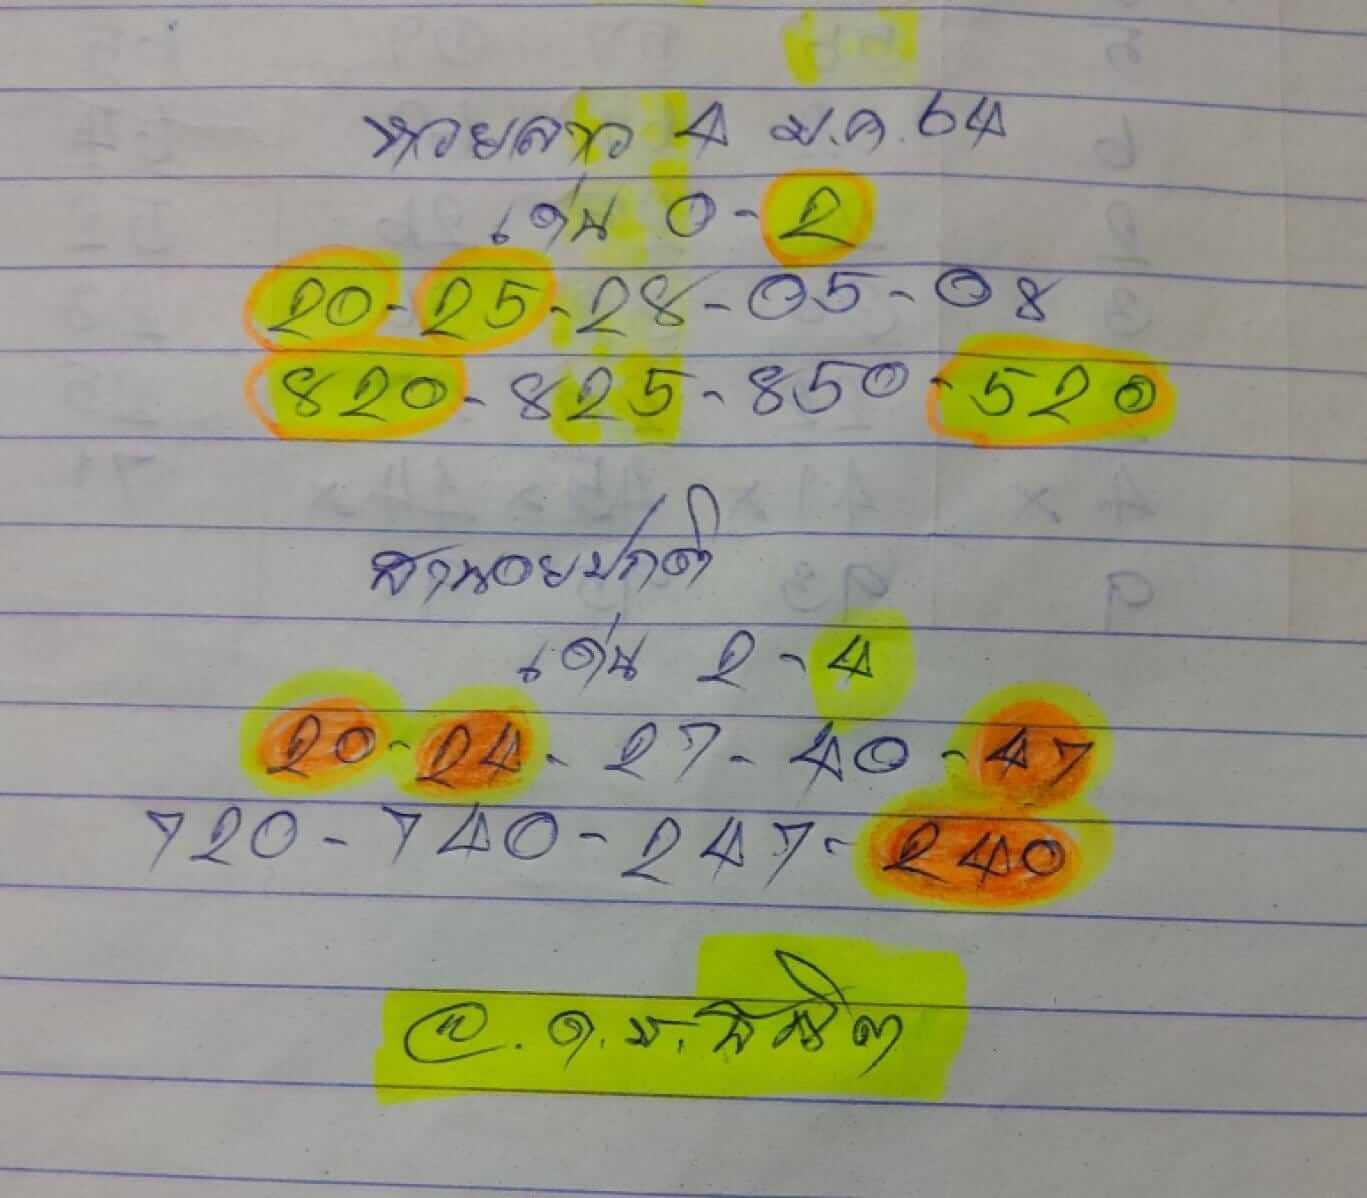 หวยลาว 4 ม.ค.64
เด่น 0-2
20-25-28-05-08
820-825-850-520
ฮานอยปกติ
เด่น 2-4
20-24-27-40-47
720-740-247-240